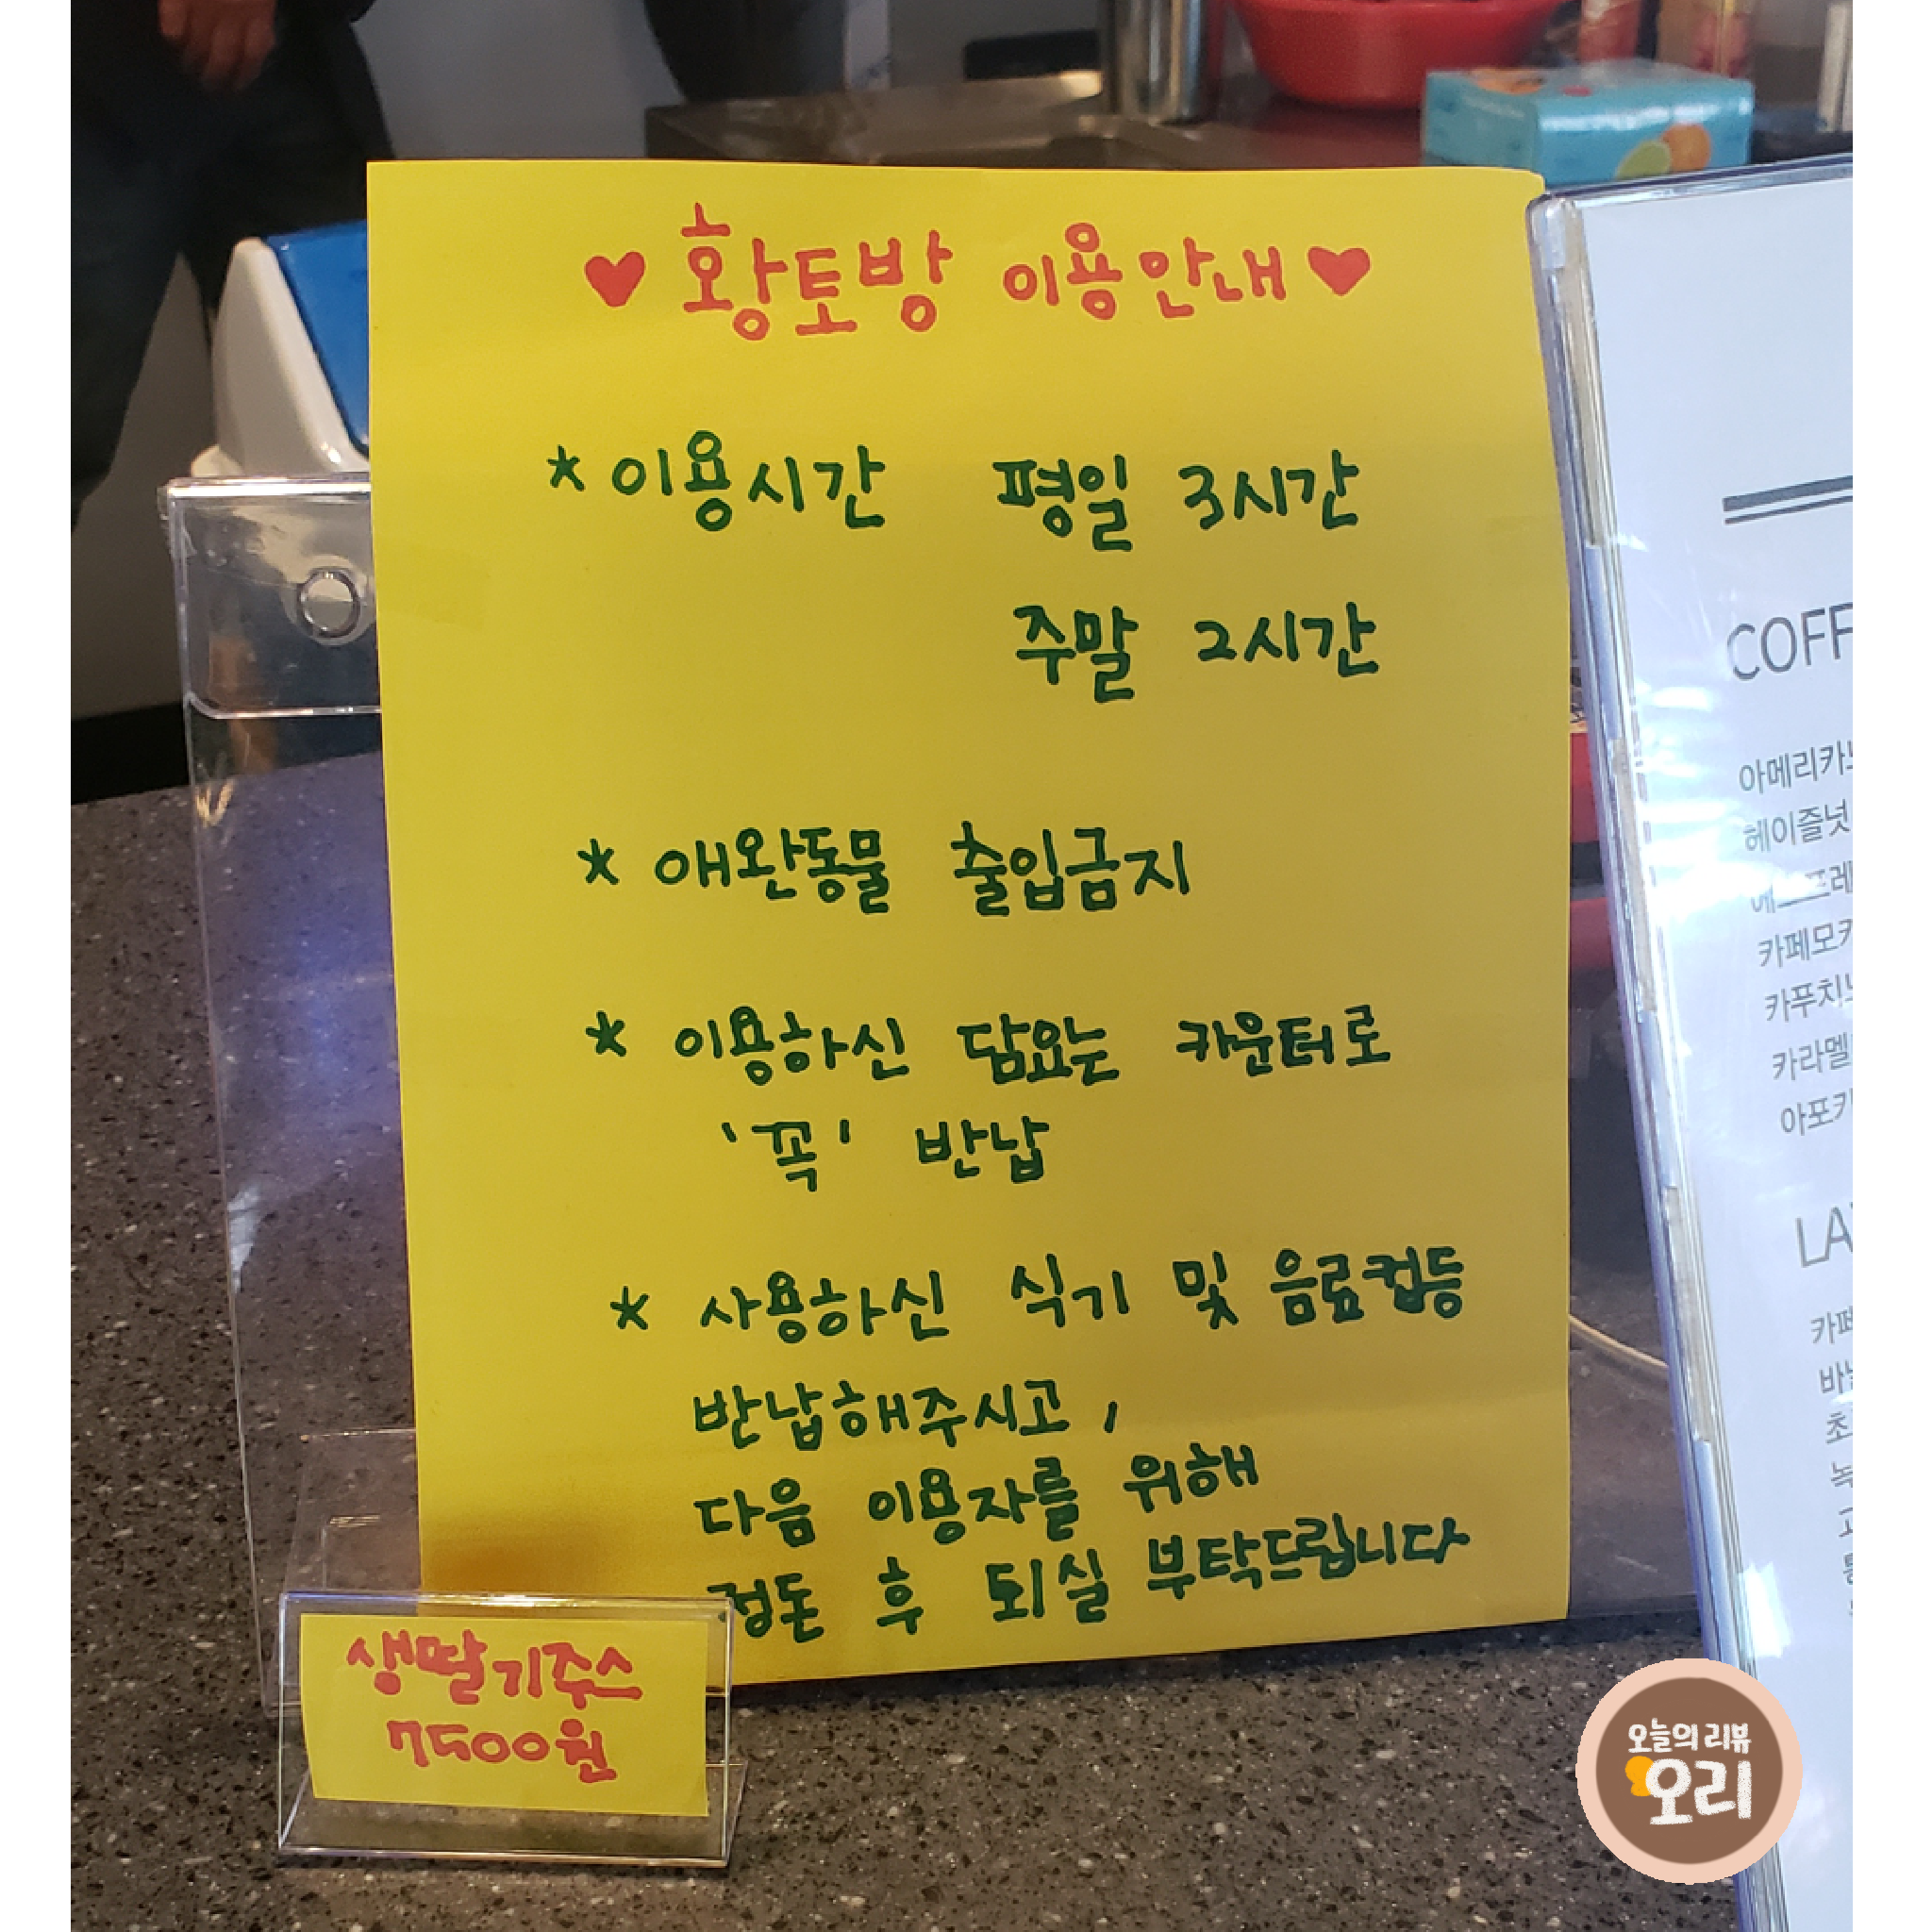 ♥ 황토방 이용안내 ♥
* 이용시간 평일 3시간
주말 2시간
* 애완동물 출입금지
* 이용하신 담요는 카운터로
'꼭' 반납
* 사용하신 식기 및 음료컵등
반납해주시고,
다음 이용자를 위해
정돈 후 퇴실 부탁드립니다
생딸기주스
7500원
COFF
아메리카노
헤이즐넛
카페모카
카푸치노
카라멜
아포카
LA
카페
바닐
초
녹
오늘의 리뷰
오리